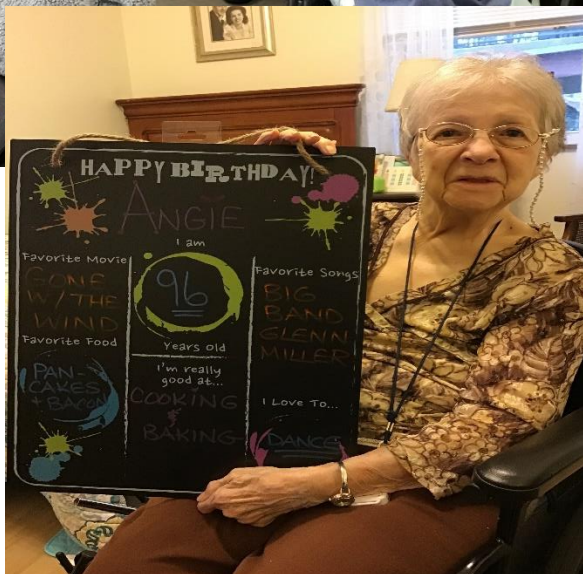 HAPPY BIRTHDAY!
ANGIE
I am
96
Years old
Favorite Movie
GONE
W/ THE
WIND
Favorite Food
PAN-
CAKES
+ BACON
I'm really
good at...
COOKING
&
BAKING
Favorite Songs
BIG
BAND
GLENN
MILLER
I Love To...
DANCE